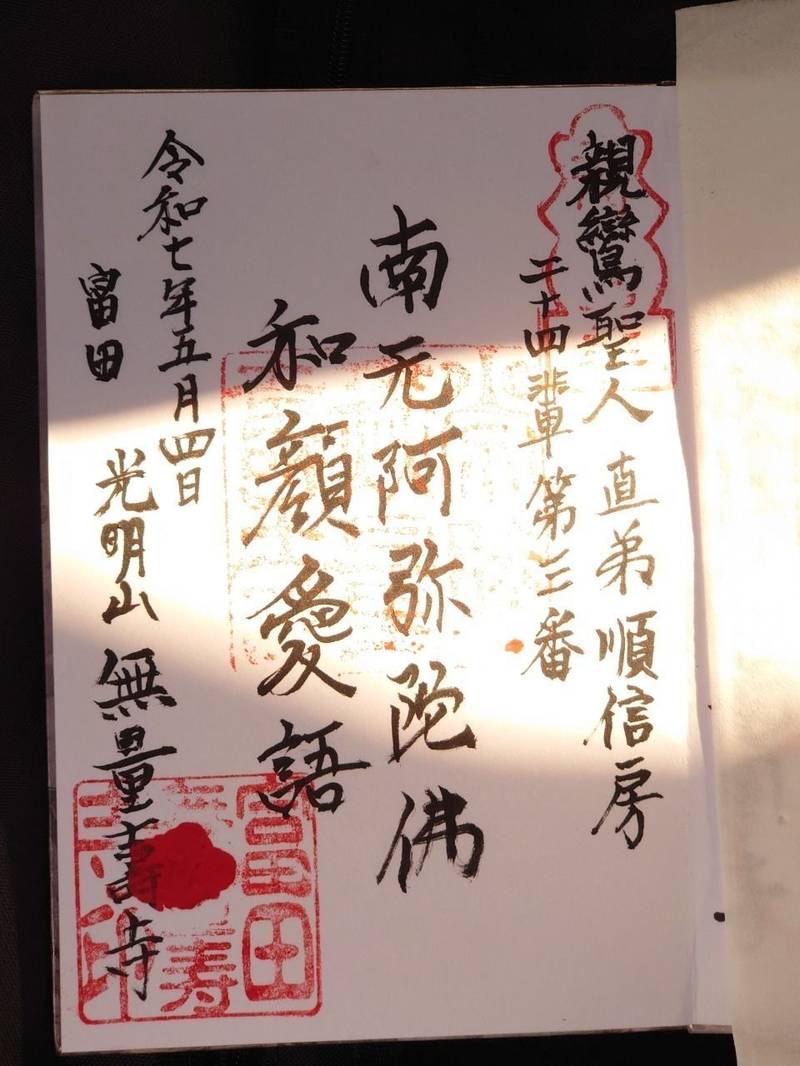 親鸞聖人 直弟順信房
二十四輩 第三番
南无阿弥陀佛
和顔愛語
令和七年五月四日
冨田 光明山 無量壽寺
冨田
寿
印